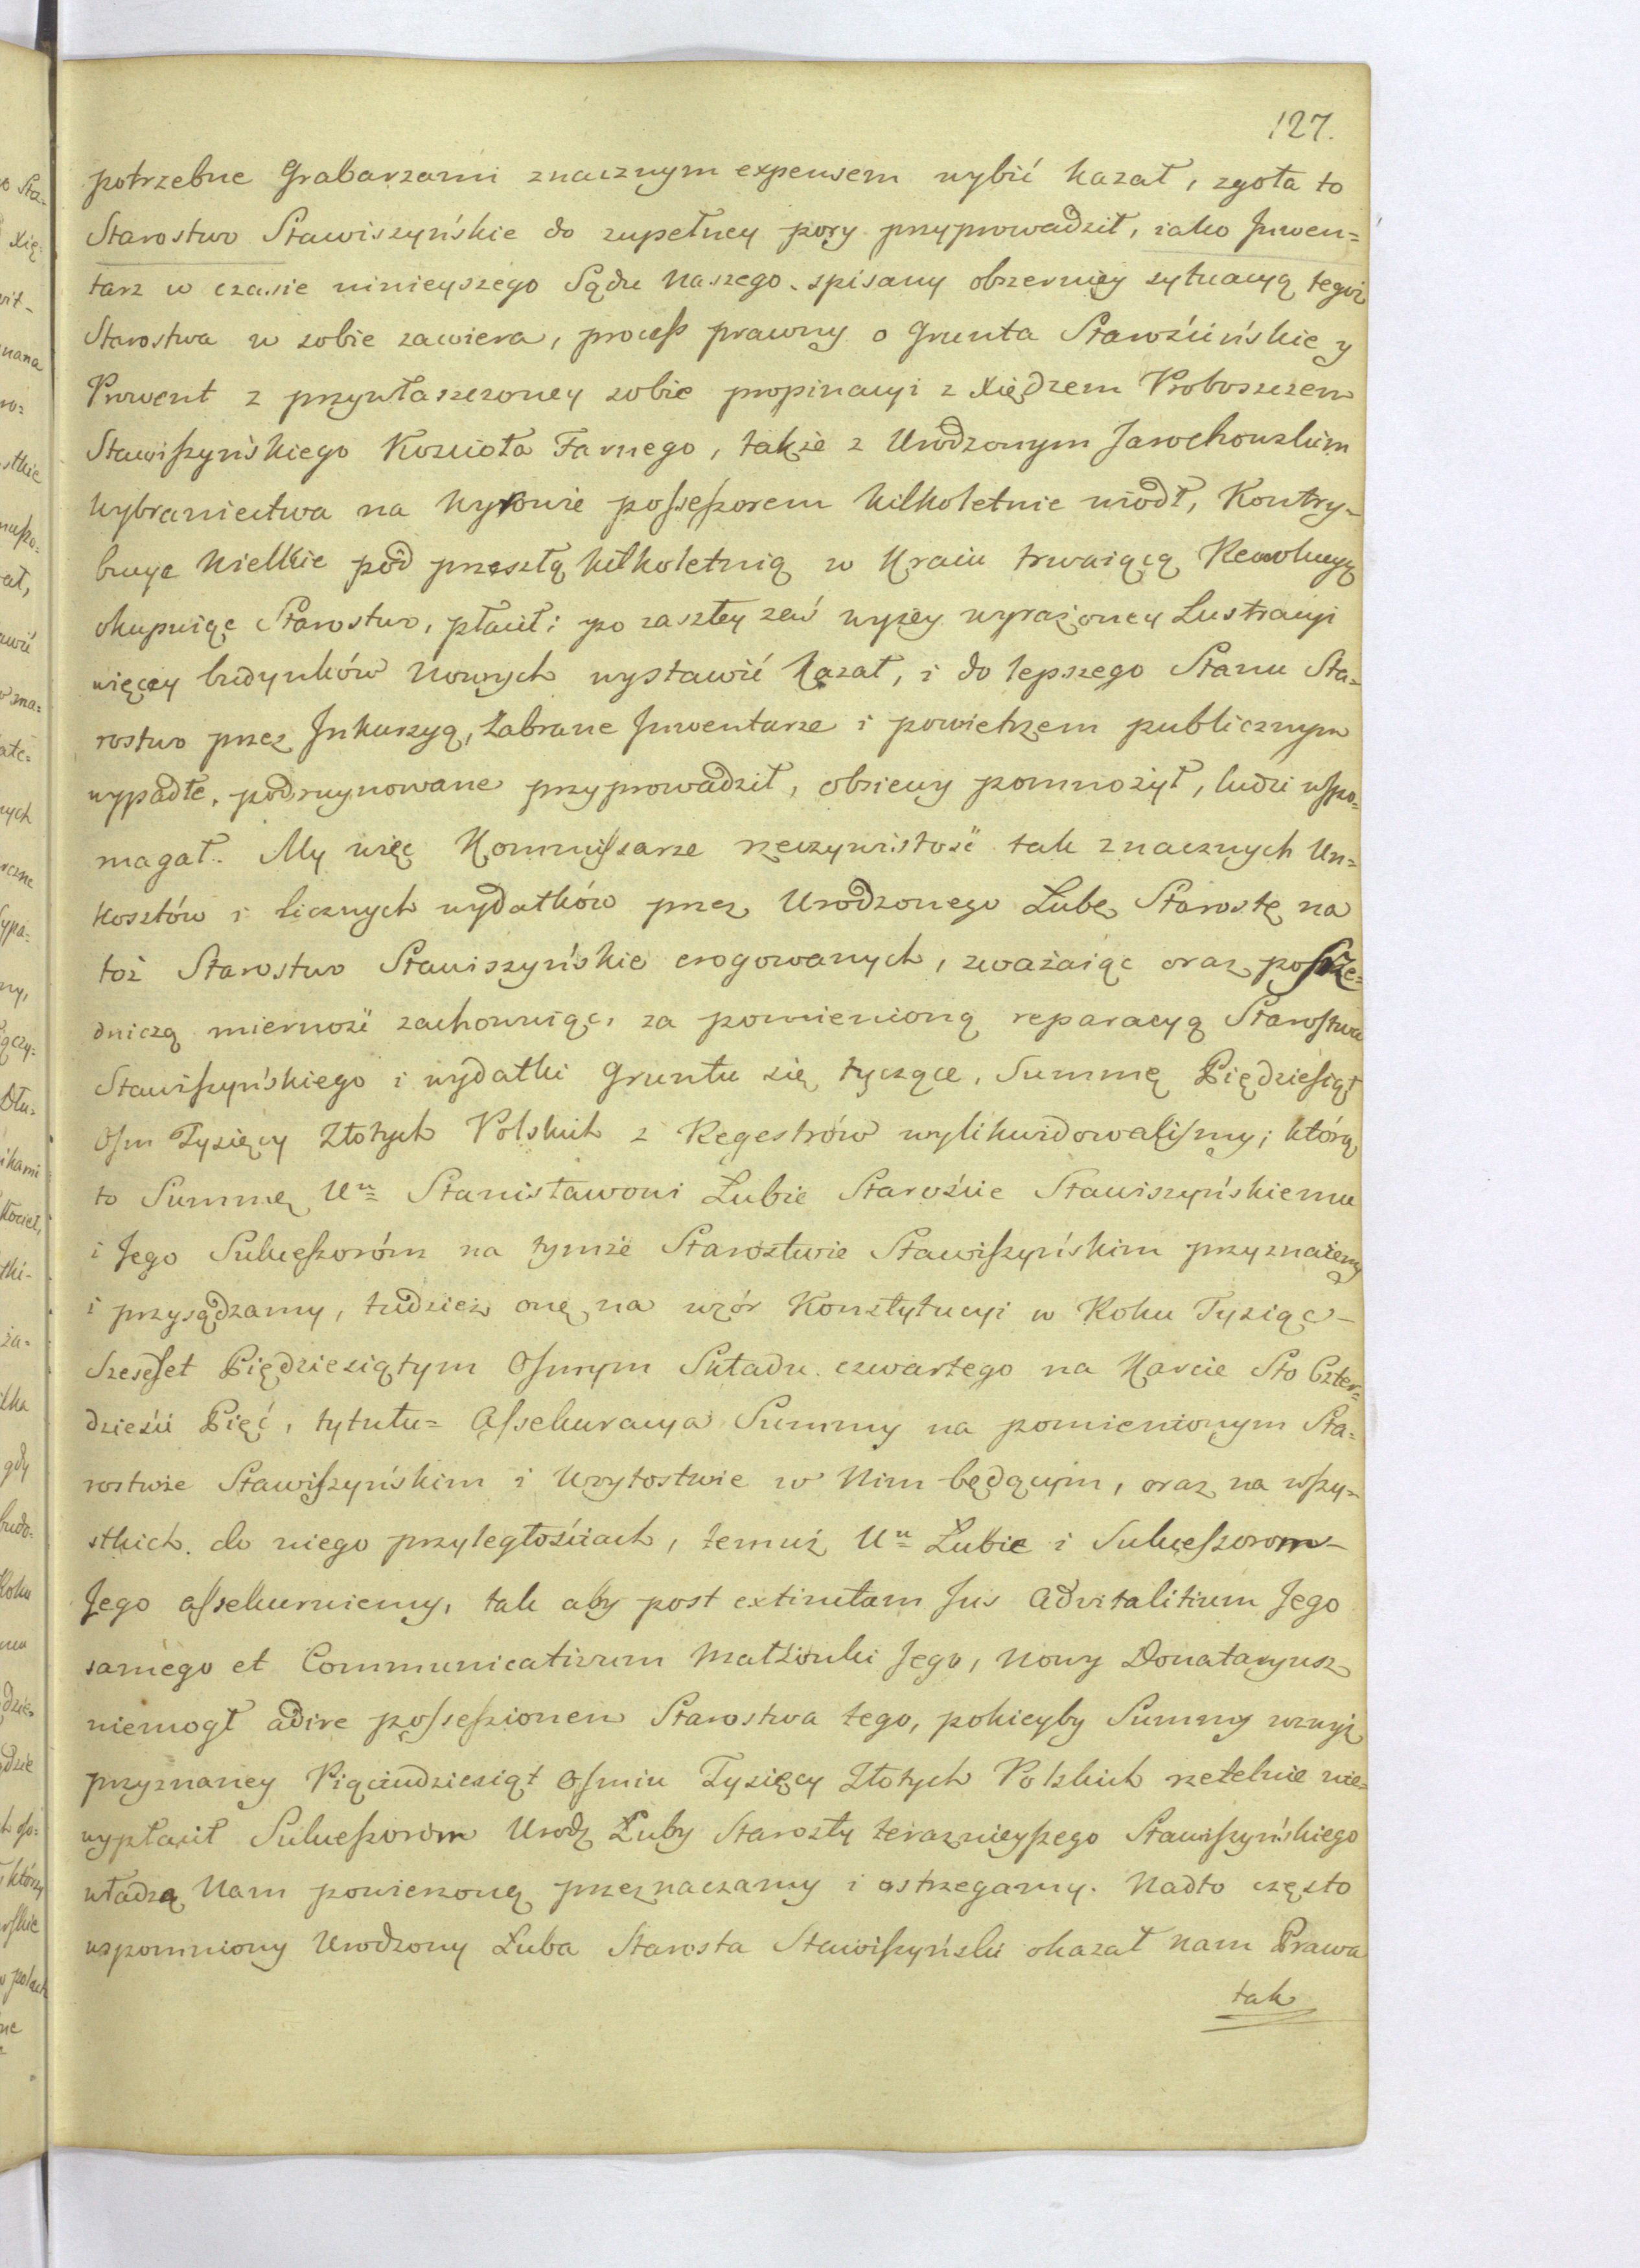 127.
potrzebne Grabarzami znacznym expensem wybić kazał, zgoła to
Starostwo Stawiszyńskie do zupełney pory przyprowadził, iako Jnwen=
tarz w czasie ninieyszego Sądu Naszego spisany obszerniey sytuacyą tegoż
Starostwa w sobie zawiera, process prawny o Grunta Starościńskie y
Prowent z przywłaszczoney sobie propinacyi z Xiędzem Proboszczem
Stawiszyńskiego Kościoła Farnego, także z Urodzonym Jarochowskim
Wybraniectwa na Wyrowie possessorem kilkoletnie wiodł, Kontry-
bucye Wielkie pod przeszłą kilkoletnią w Kraiu trwaiącą Rewolucyą
okupuiąc Starostwo, płacił; po zaszłey zaś wyżey wyrażoney Lustracyi
więcey budynków Nowych wystawić kazał, i do lepszego Stanu Sta=
rostwo przez Jnkursyą, zabrane Jnwentarze i powietrzem publicznym
wypadłe, podruynowane przyprowadził, obsiewy pomnożył, ludzi wspo=
magał. My więc Kommissarze rzeczywistość tak znacznych Un=
kosztów i licznych wydatków przez Urodzonego Łubę Starostę na
toż Starostwo Stawiszyńskie erogowanych, zważaiąc oraz pośrze=
dniczą mierność zachowuiąc, za pomienioną reparacyą Starostwa
Stawiszyńskiego i wydatki Gruntu się tyczące, Summę Pięćdziesiąt
Osm Tysięcy Złotych Polskich z Regestrów wylikwidowaliśmy; którą
to Summę Un= Stanisławowi Łubie Staroście Stawiszyńskiemu
i Jego Sukcessoróm na tymże Starostwie Stawiszyńskim przyznaiemy
i przysądzamy, tudzież onę na wzór Konstytucyi w Roku Tysiąc-
Szescset Pięćdziesiątym Osmym Składu czwartego na Karcie Sto Czter=
dzieści Pięć, tytułu= Assekuracya Summy na pomienionym Sta=
rostwie Stawiszyńskim i Woytostwie w Nim będącym, oraz na wszy=
stkich do niego przyległościach, temuż Un= Łubie i Sukcessorom-
Jego assekuruiemy, tak aby post extinctam Jus Advitalitium Jego
samego et Communicativum Małżonki Jego, Nowy Donataryusz
niemogł adire possessionem Starostwa tego, pokieyby Summy wzwyż
przyznaney Pięciudziesiąt Osmiu Tysięcy Złotych Polskich rzetelnie nie=
wypłacił Sukcessorom Urodz Łuby Starosty teraznieyszego Stawiszyńskiego
władzą Nam powierzoną przeznaczamy i ostrzegamy. Nadto często
wspomniony Urodzony Łuba Starosta Stawiszyński okazał nam Prawa
tak